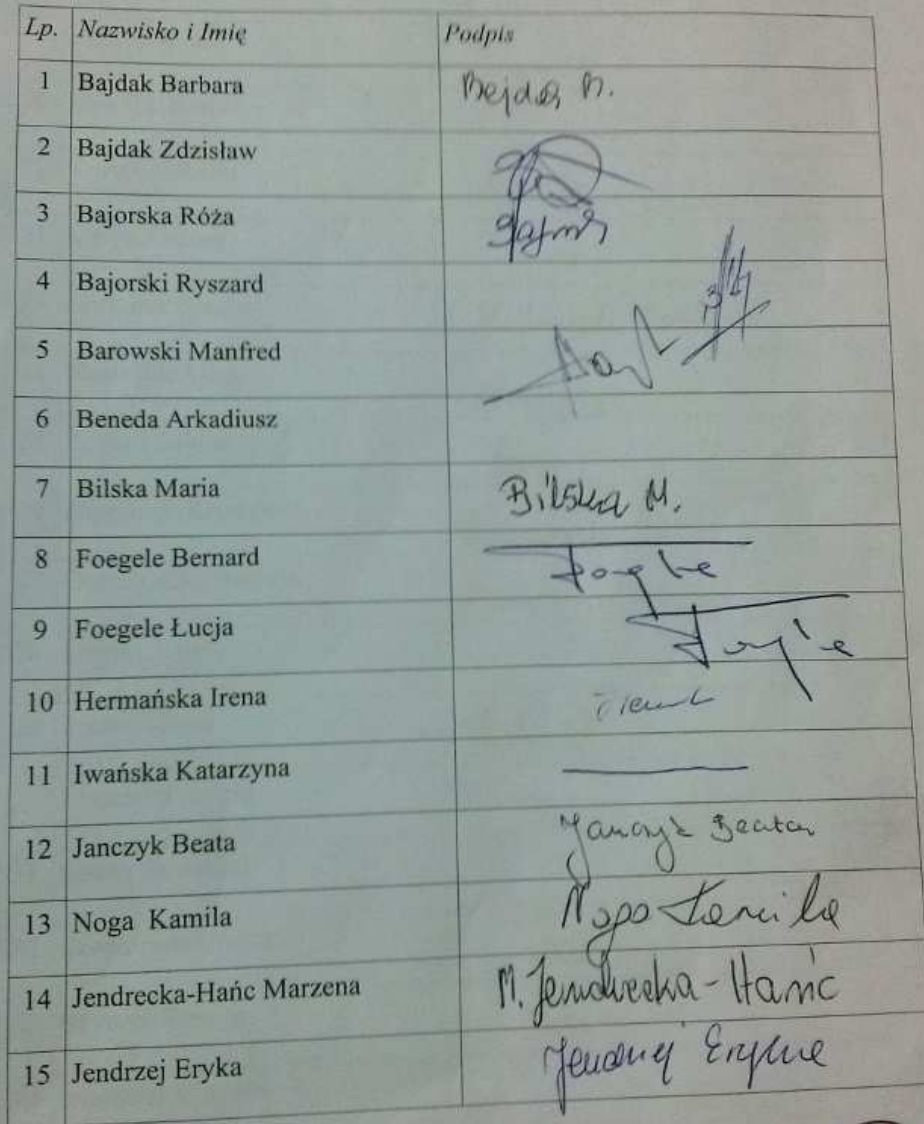 Lp. Nazwisko i Imię Podpis
1 Bajdak Barbara
2 Bajdak Zdzisław
3 Bajorska Róża
4 Bajorski Ryszard
5 Barowski Manfred
6 Beneda Arkadiusz
7 Bilska Maria Bilska M.
8 Foegele Bernard
9 Foegele Łucja
10 Hermańska Irena
11 Iwańska Katarzyna
12 Janczyk Beata Janczyk Beata
13 Noga Kamila Noga Kamila
14 Jendrecka-Hańc Marzena M. Jendrecka-Hańc
15 Jendrzej Eryka